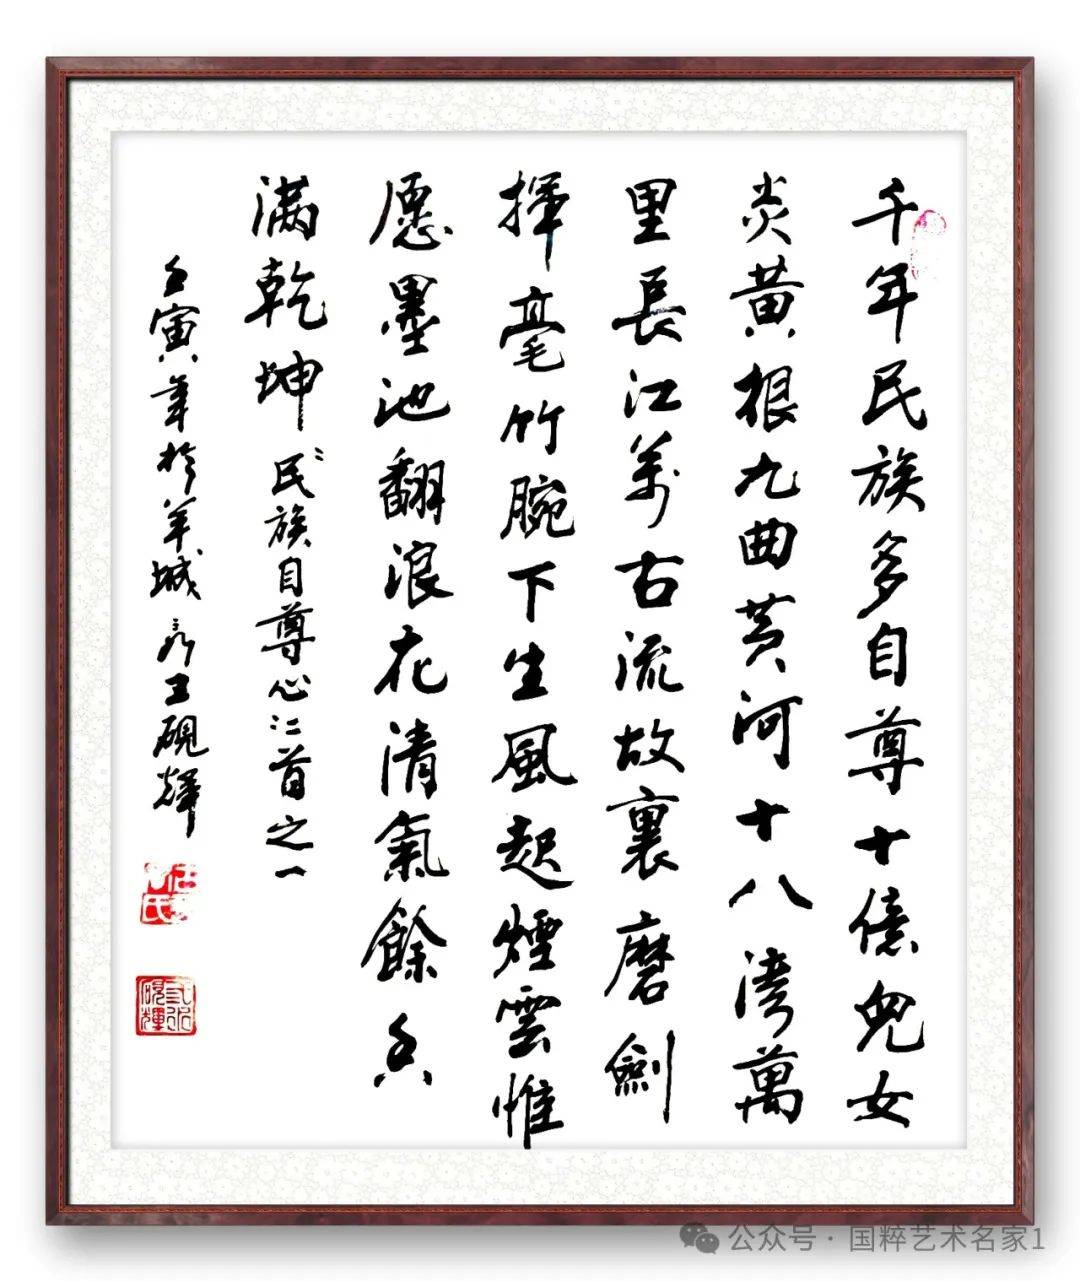 千年民族多自尊十億兒女
炎黄根九曲黄河十八湾萬
里長江萬古流故裏磨劍
揮毫竹腕下生風起煙雲惟
愿墨池翻浪花清氣餘香
满乾坤 "民族自尊心"二首之一
壬寅年於羊城 硯輝
公众号·国粹艺术名家1